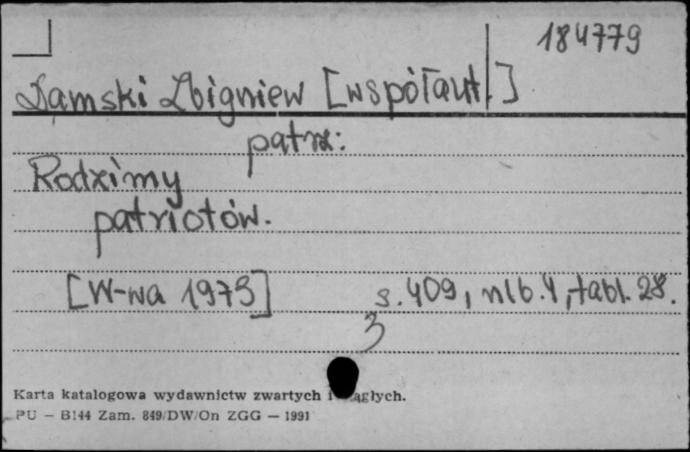 184779
Damski Zbigniew [współaut.]
patrz:
Rodzimy
patriotów.
[W-wa 1973] s. 409, nlb. 4, tabl. 28.
3
Karta katalogowa wydawnictw zwartych i ciągłych.
PU — B144 Zam. 849/DW/On ZGG — 1991